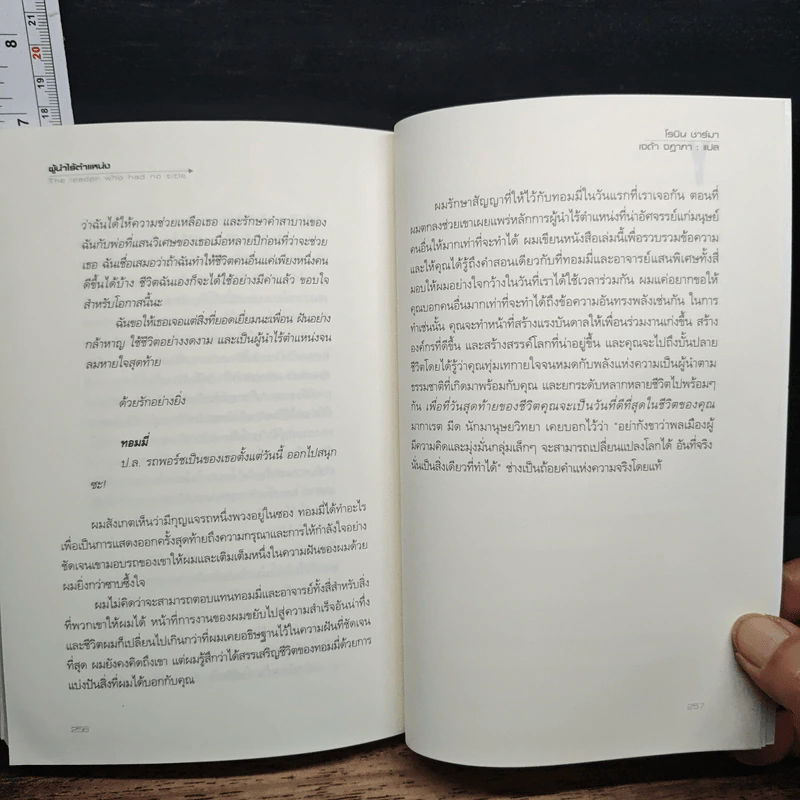 8
7
21
20
19
18
ผู้นำไร้ตำแหน่ง
The leader who had no title
ว่าฉันได้ให้ความช่วยเหลือเธอ และรักษาคำสาบานของ
ฉันกับพ่อที่แสนวิเศษของเธอเมื่อหลายปีก่อนที่ว่าจะช่วย
เธอ ฉันเชื่อเสมอว่าถ้าฉันทำให้ชีวิตคนอื่นแค่เพียงหนึ่งคน
ดีขึ้นได้บ้าง ชีวิตฉันเองก็จะได้ใช้อย่างมีค่าแล้ว ขอบใจ
สำหรับโอกาสนี้นะ
ฉันขอให้เธอเจอแต่สิ่งที่ยอดเยี่ยมนะเพื่อน ฝันอย่าง
กล้าหาญ ใช้ชีวิตอย่างงดงาม และเป็นผู้นำไร้ตำแหน่งจน
ลมหายใจสุดท้าย
ด้วยรักอย่างยิ่ง
ทอมมี่
ป.ล. รถพอร์ชเป็นของเธอตั้งแต่วันนี้ ออกไปสนุก
ซะ!
ผมสังเกตเห็นว่ามีกุญแจรถหนึ่งพวงอยู่ในซอง ทอมมี่ได้ทำอะไร
เพื่อเป็นการแสดงออกครั้งสุดท้ายถึงความกรุณาและการให้กำลังใจอย่าง
ชัดเจนเขามอบรถของเขาให้ผมและเติมเต็มหนึ่งในความฝันของผมด้วย
ผมยิ่งกว่าซาบซึ้งใจ
ผมไม่คิดว่าจะสามารถตอบแทนทอมมี่และอาจารย์ทั้งสี่สำหรับสิ่ง
ที่พวกเขาให้ผมได้ หน้าที่การงานของผมขยับไปสู่ความสำเร็จอันน่าทึ่ง
และชีวิตผมก็เปลี่ยนไปเกินกว่าที่ผมเคยอธิษฐานไว้ในความฝันที่ชัดเจน
ที่สุด ผมยังคงคิดถึงเขา แต่ผมรู้สึกว่าได้สรรเสริญชีวิตของทอมมี่ด้วยการ
แบ่งปันสิ่งที่ผมได้บอกกับคุณ
256
โรบิน ชาร์มา
เจด้า จฎาภา : แปล
ผมรักษาสัญญาที่ให้ไว้กับทอมมี่ในวันแรกที่เราเจอกัน ตอนที่
ผมตกลงช่วยเขาเผยแพร่หลักการผู้นำไร้ตำแหน่งที่น่าอัศจรรย์แก่มนุษย์
คนอื่นให้มากเท่าที่จะทำได้ ผมเขียนหนังสือเล่มนี้เพื่อรวบรวมข้อความ
และให้คุณได้รู้ถึงคำสอนเดียวกับที่ทอมมี่และอาจารย์แสนพิเศษทั้งสี่
มอบให้ผมอย่างใจกว้างในวันที่เราได้ใช้เวลาร่วมกัน ผมแค่อยากขอให้
คุณบอกคนอื่นมากเท่าที่จะทำได้ถึงข้อความอันทรงพลังเช่นกัน ในการ
ทำเช่นนั้น คุณจะทำหน้าที่สร้างแรงบันดาลให้เพื่อนร่วมงานเก่งขึ้น สร้าง
องค์กรที่ดีขึ้น และสร้างสรรค์โลกที่น่าอยู่ขึ้น และคุณจะไปถึงบั้นปลาย
ชีวิตโดยได้รู้ว่าคุณทุ่มเทกายใจจนหมดกับพลังแห่งความเป็นผู้นำตาม
ธรรมชาติที่เกิดมาพร้อมกับคุณ และยกระดับหลากหลายชีวิตไปพร้อมๆ
กัน เพื่อที่วันสุดท้ายของชีวิตคุณจะเป็นวันที่ดีที่สุดในชีวิตของคุณ
มากาเรต มีด นักมานุษยวิทยา เคยบอกไว้ว่า "อย่ากังขาว่าพลเมืองผู้
มีความคิดและมุ่งมั่นกลุ่มเล็กๆ จะสามารถเปลี่ยนแปลงโลกได้ อันที่จริง
นั่นเป็นสิ่งเดียวที่ทำได้" ช่างเป็นถ้อยคำแห่งความจริงโดยแท้
257